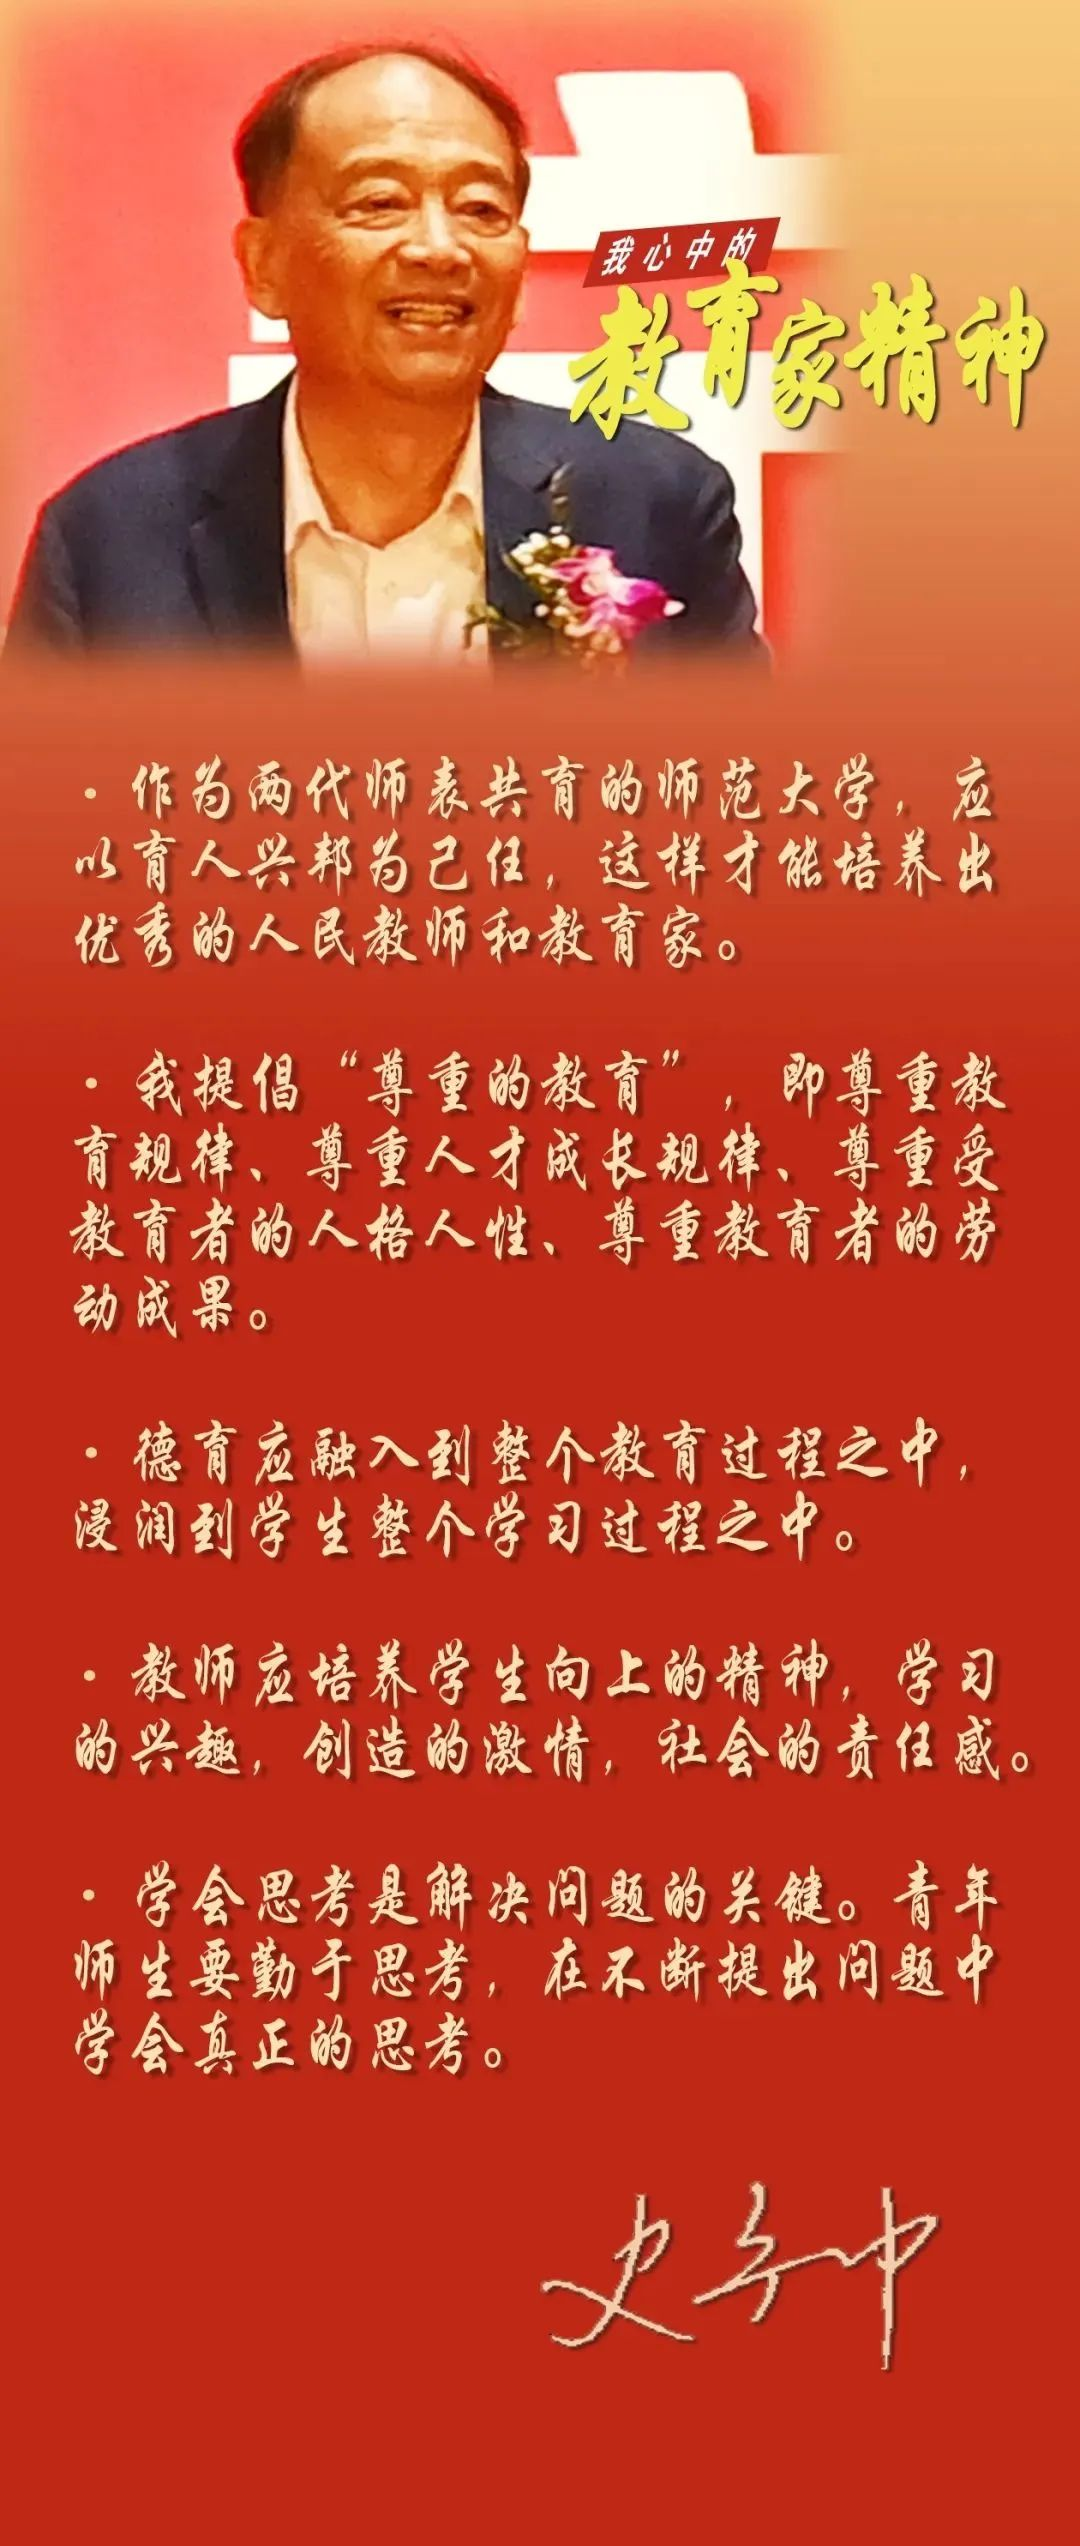 我心中的
教育家精神
· 作为两代师表共育的师范大学，应
以育人兴邦为己任，这样才能培养出
优秀的人民教师和教育家。
· 我提倡“尊重的教育”，即尊重教
育规律、尊重人才成长规律、尊重受
教育者的人格人性、尊重教育者的劳
动成果。
· 德育应融入到整个教育过程之中，
浸润到学生整个学习过程之中。
· 教师应培养学生向上的精神，学习
的兴趣，创造的激情，社会的责任感。
· 学会思考是解决问题的关键。青年
师生要勤于思考，在不断提出问题中
学会真正的思考。
史宁中